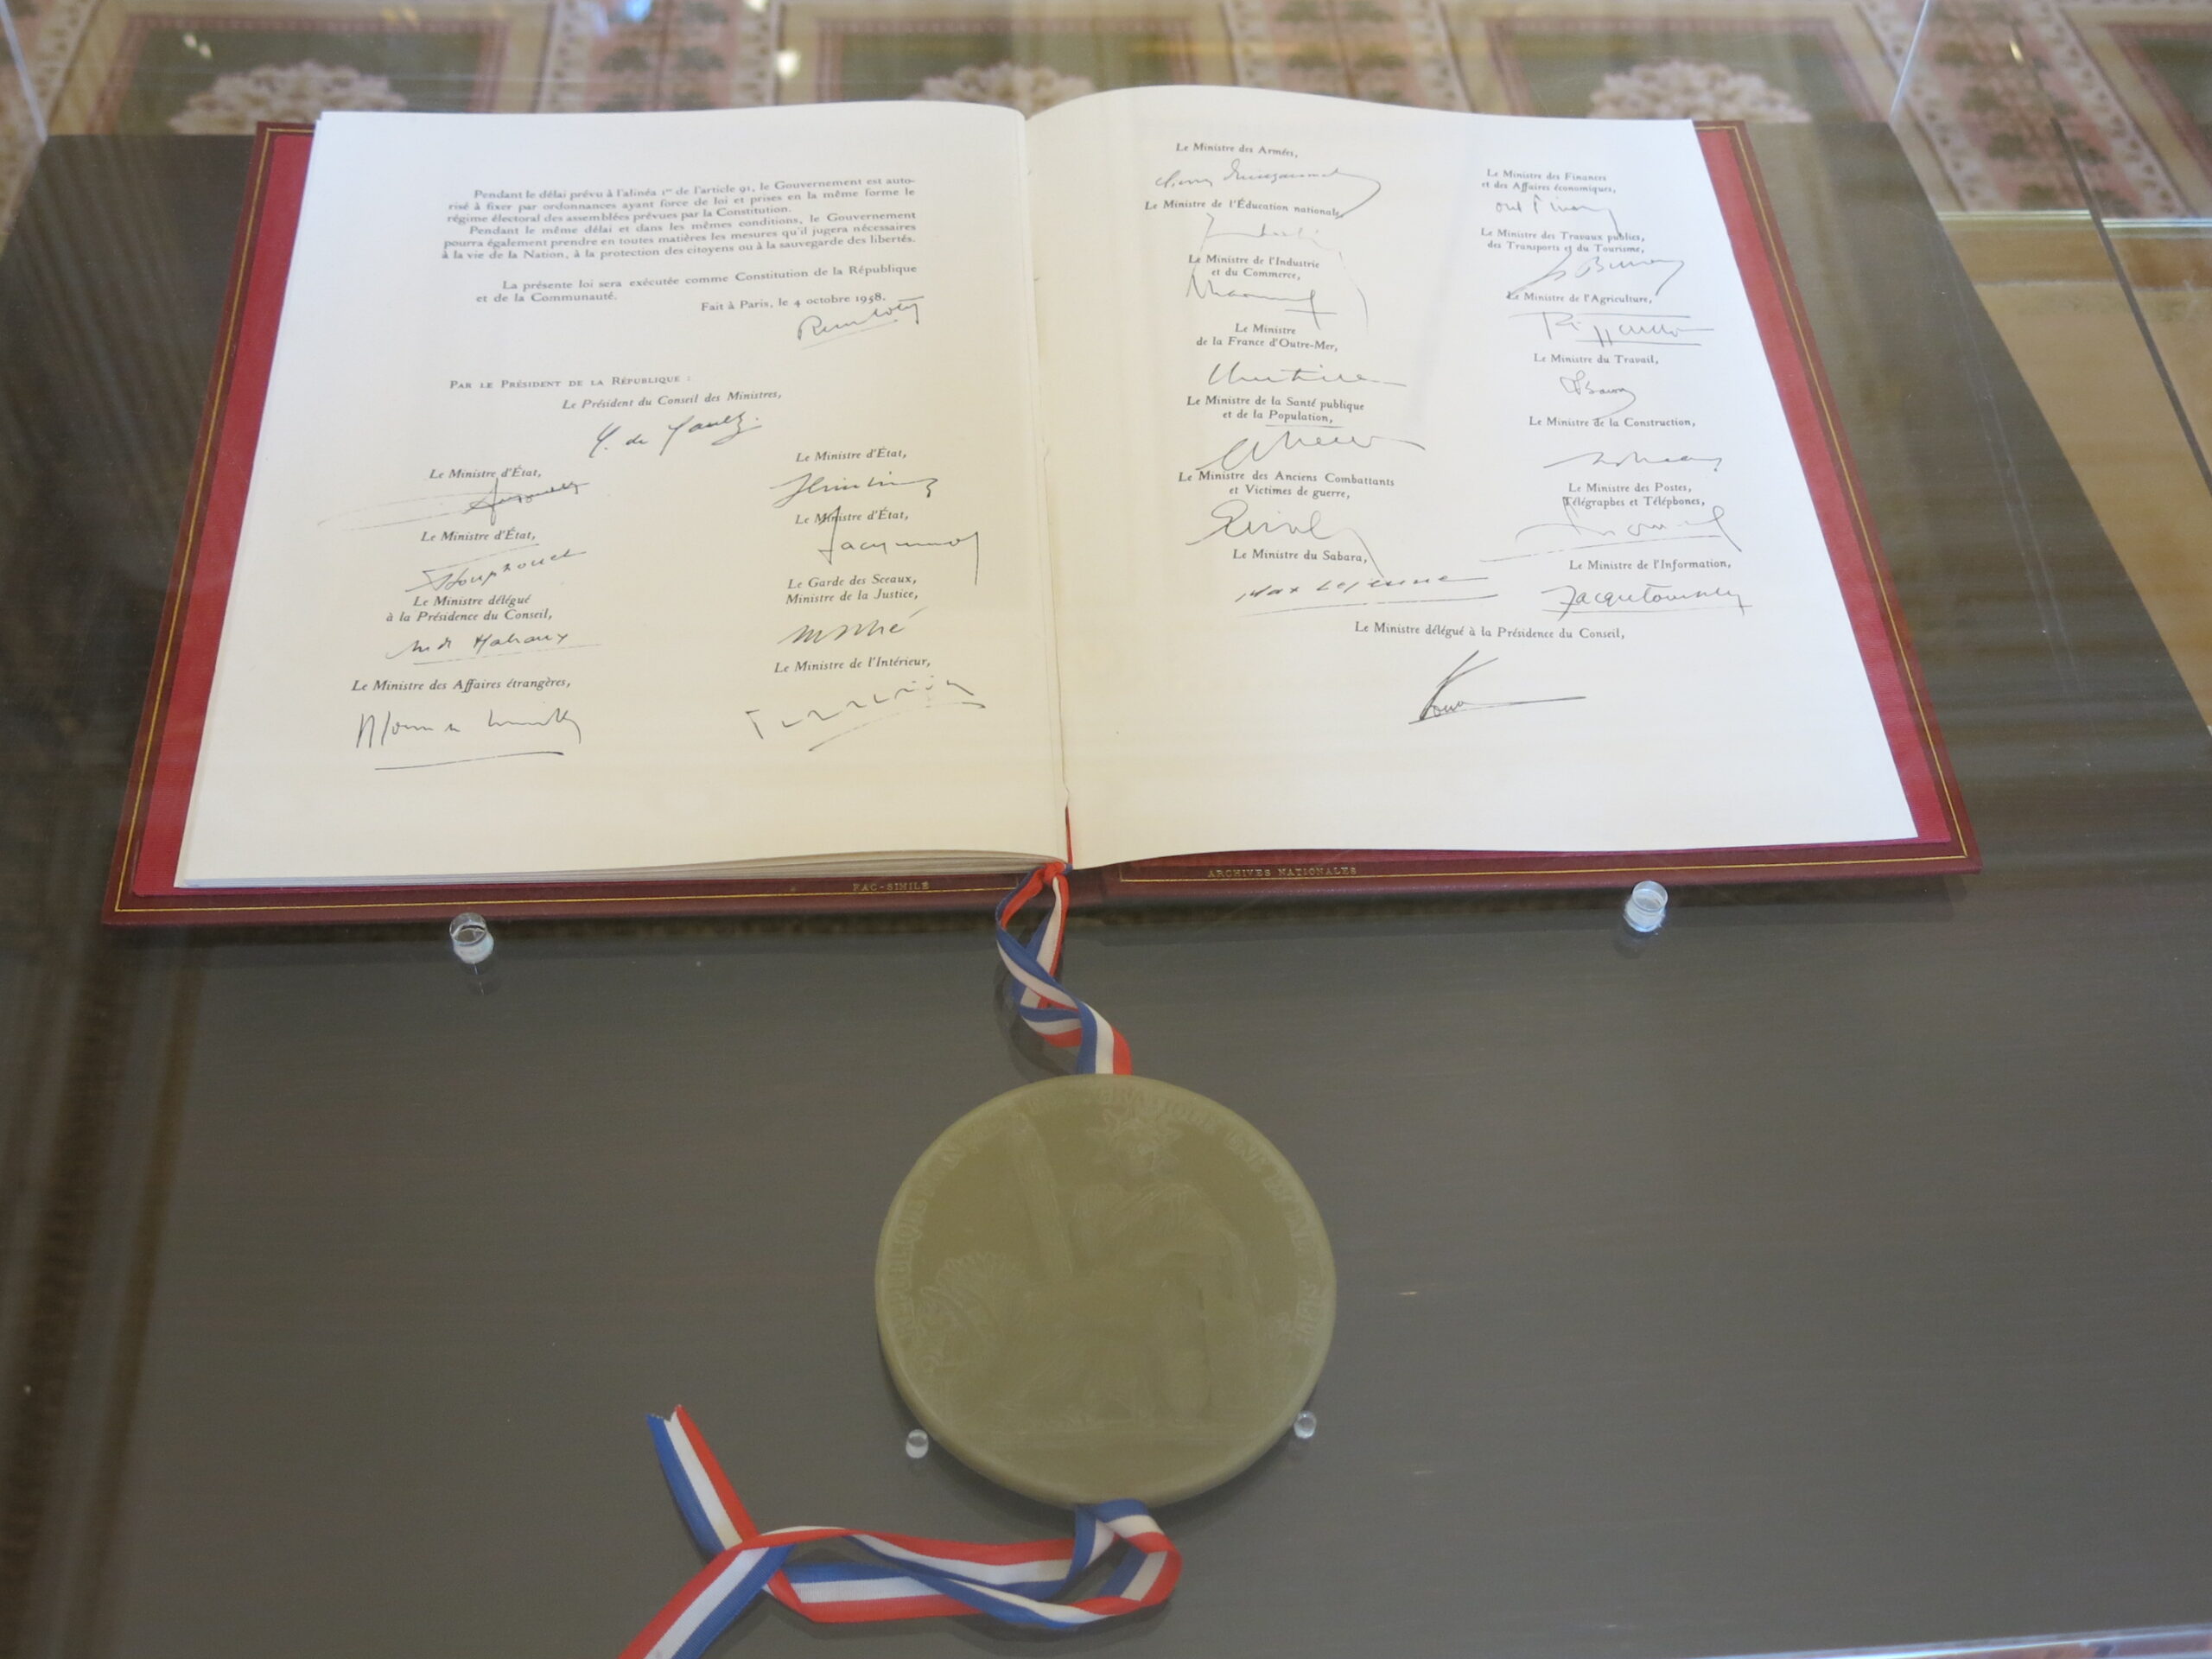 Pendant le délai prévu à l'alinéa 1er de l'article 91, le Gouvernement est auto-
risé à fixer par ordonnances ayant force de loi et prises en la même forme le
régime électoral des assemblées prévues par la Constitution.
Pendant le même délai et dans les mêmes conditions, le Gouvernement
pourra également prendre en toutes matières les mesures qu'il jugera nécessaires
à la vie de la Nation, à la protection des citoyens ou à la sauvegarde des libertés.
La présente loi sera exécutée comme Constitution de la République
et de la Communauté.
Fait à Paris, le 4 octobre 1958.
PAR LE PRÉSIDENT DE LA RÉPUBLIQUE :
Le Président du Conseil des Ministres,
de Gaulle
Le Ministre d'État,
Le Ministre d'État,
Houphouet
Le Ministre délégué
à la Présidence du Conseil,
Malraux
Le Ministre des Affaires étrangères,
Le Ministre d'État,
Le Ministre d'État,
Jacquinot
Le Garde des Sceaux,
Ministre de la Justice,
Le Ministre de l'Intérieur,
Le Ministre des Armées,
Le Ministre de l'Éducation nationale,
Le Ministre de l'Industrie
et du Commerce,
Le Ministre
de la France d'Outre-Mer,
Le Ministre de la Santé publique
et de la Population,
Le Ministre des Anciens Combattants
et Victimes de guerre,
Le Ministre du Sahara,
Max Lejeune
Le Ministre des Finances
et des Affaires économiques,
Le Ministre des Travaux publics,
des Transports et du Tourisme,
Le Ministre de l'Agriculture,
Le Ministre du Travail,
Le Ministre de la Construction,
Le Ministre des Postes,
Télégraphes et Téléphones,
Le Ministre de l'Information,
Le Ministre délégué à la Présidence du Conseil,
FAC-SIMILÉ
ARCHIVES NATIONALES